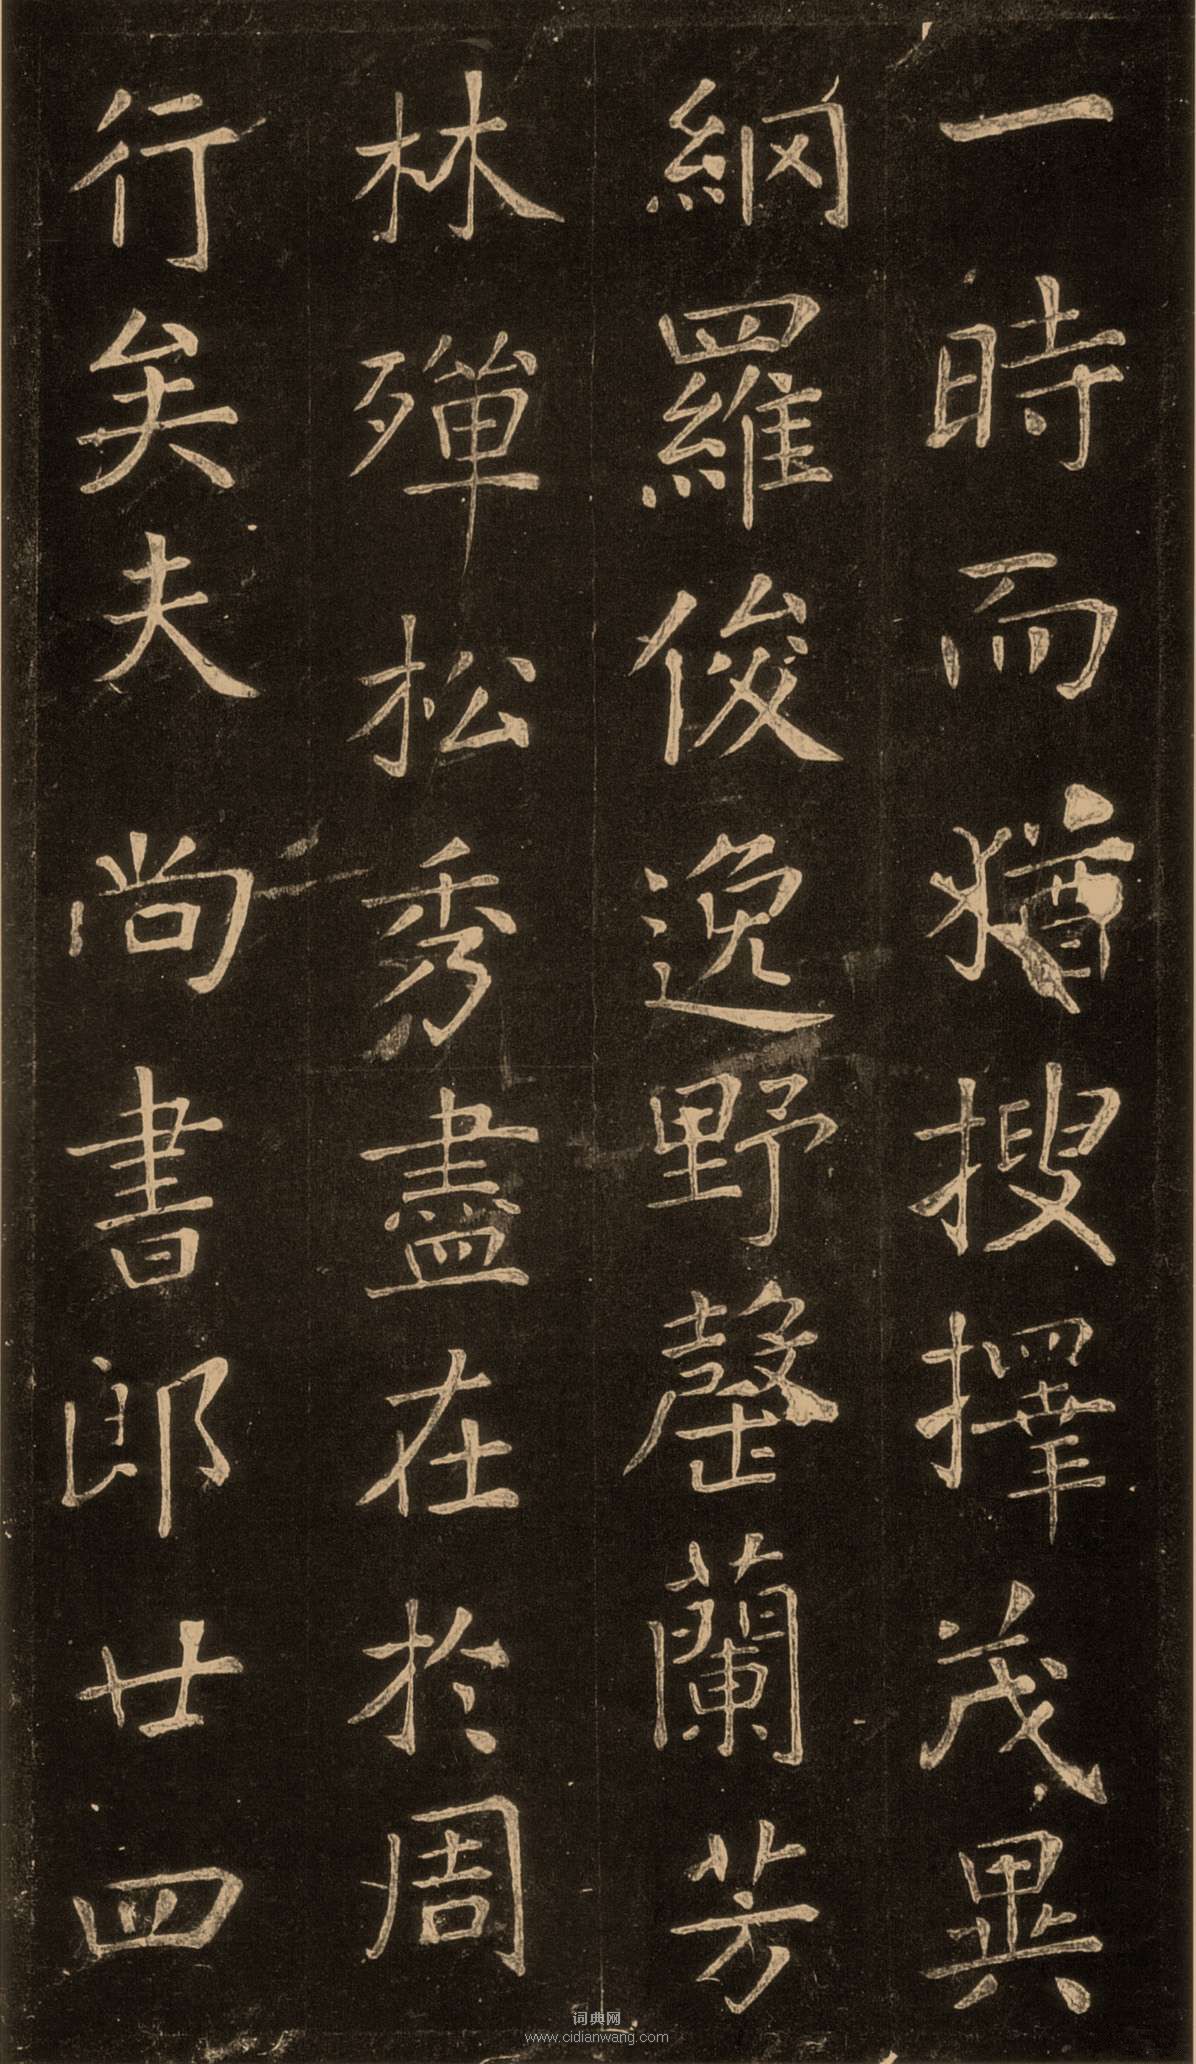 一時而猶搜擇茂異
網羅俊逸野罄蘭芳
林殫松秀盡在於周
行矣夫尚書郎廿四
词典网
www.cidianwang.com